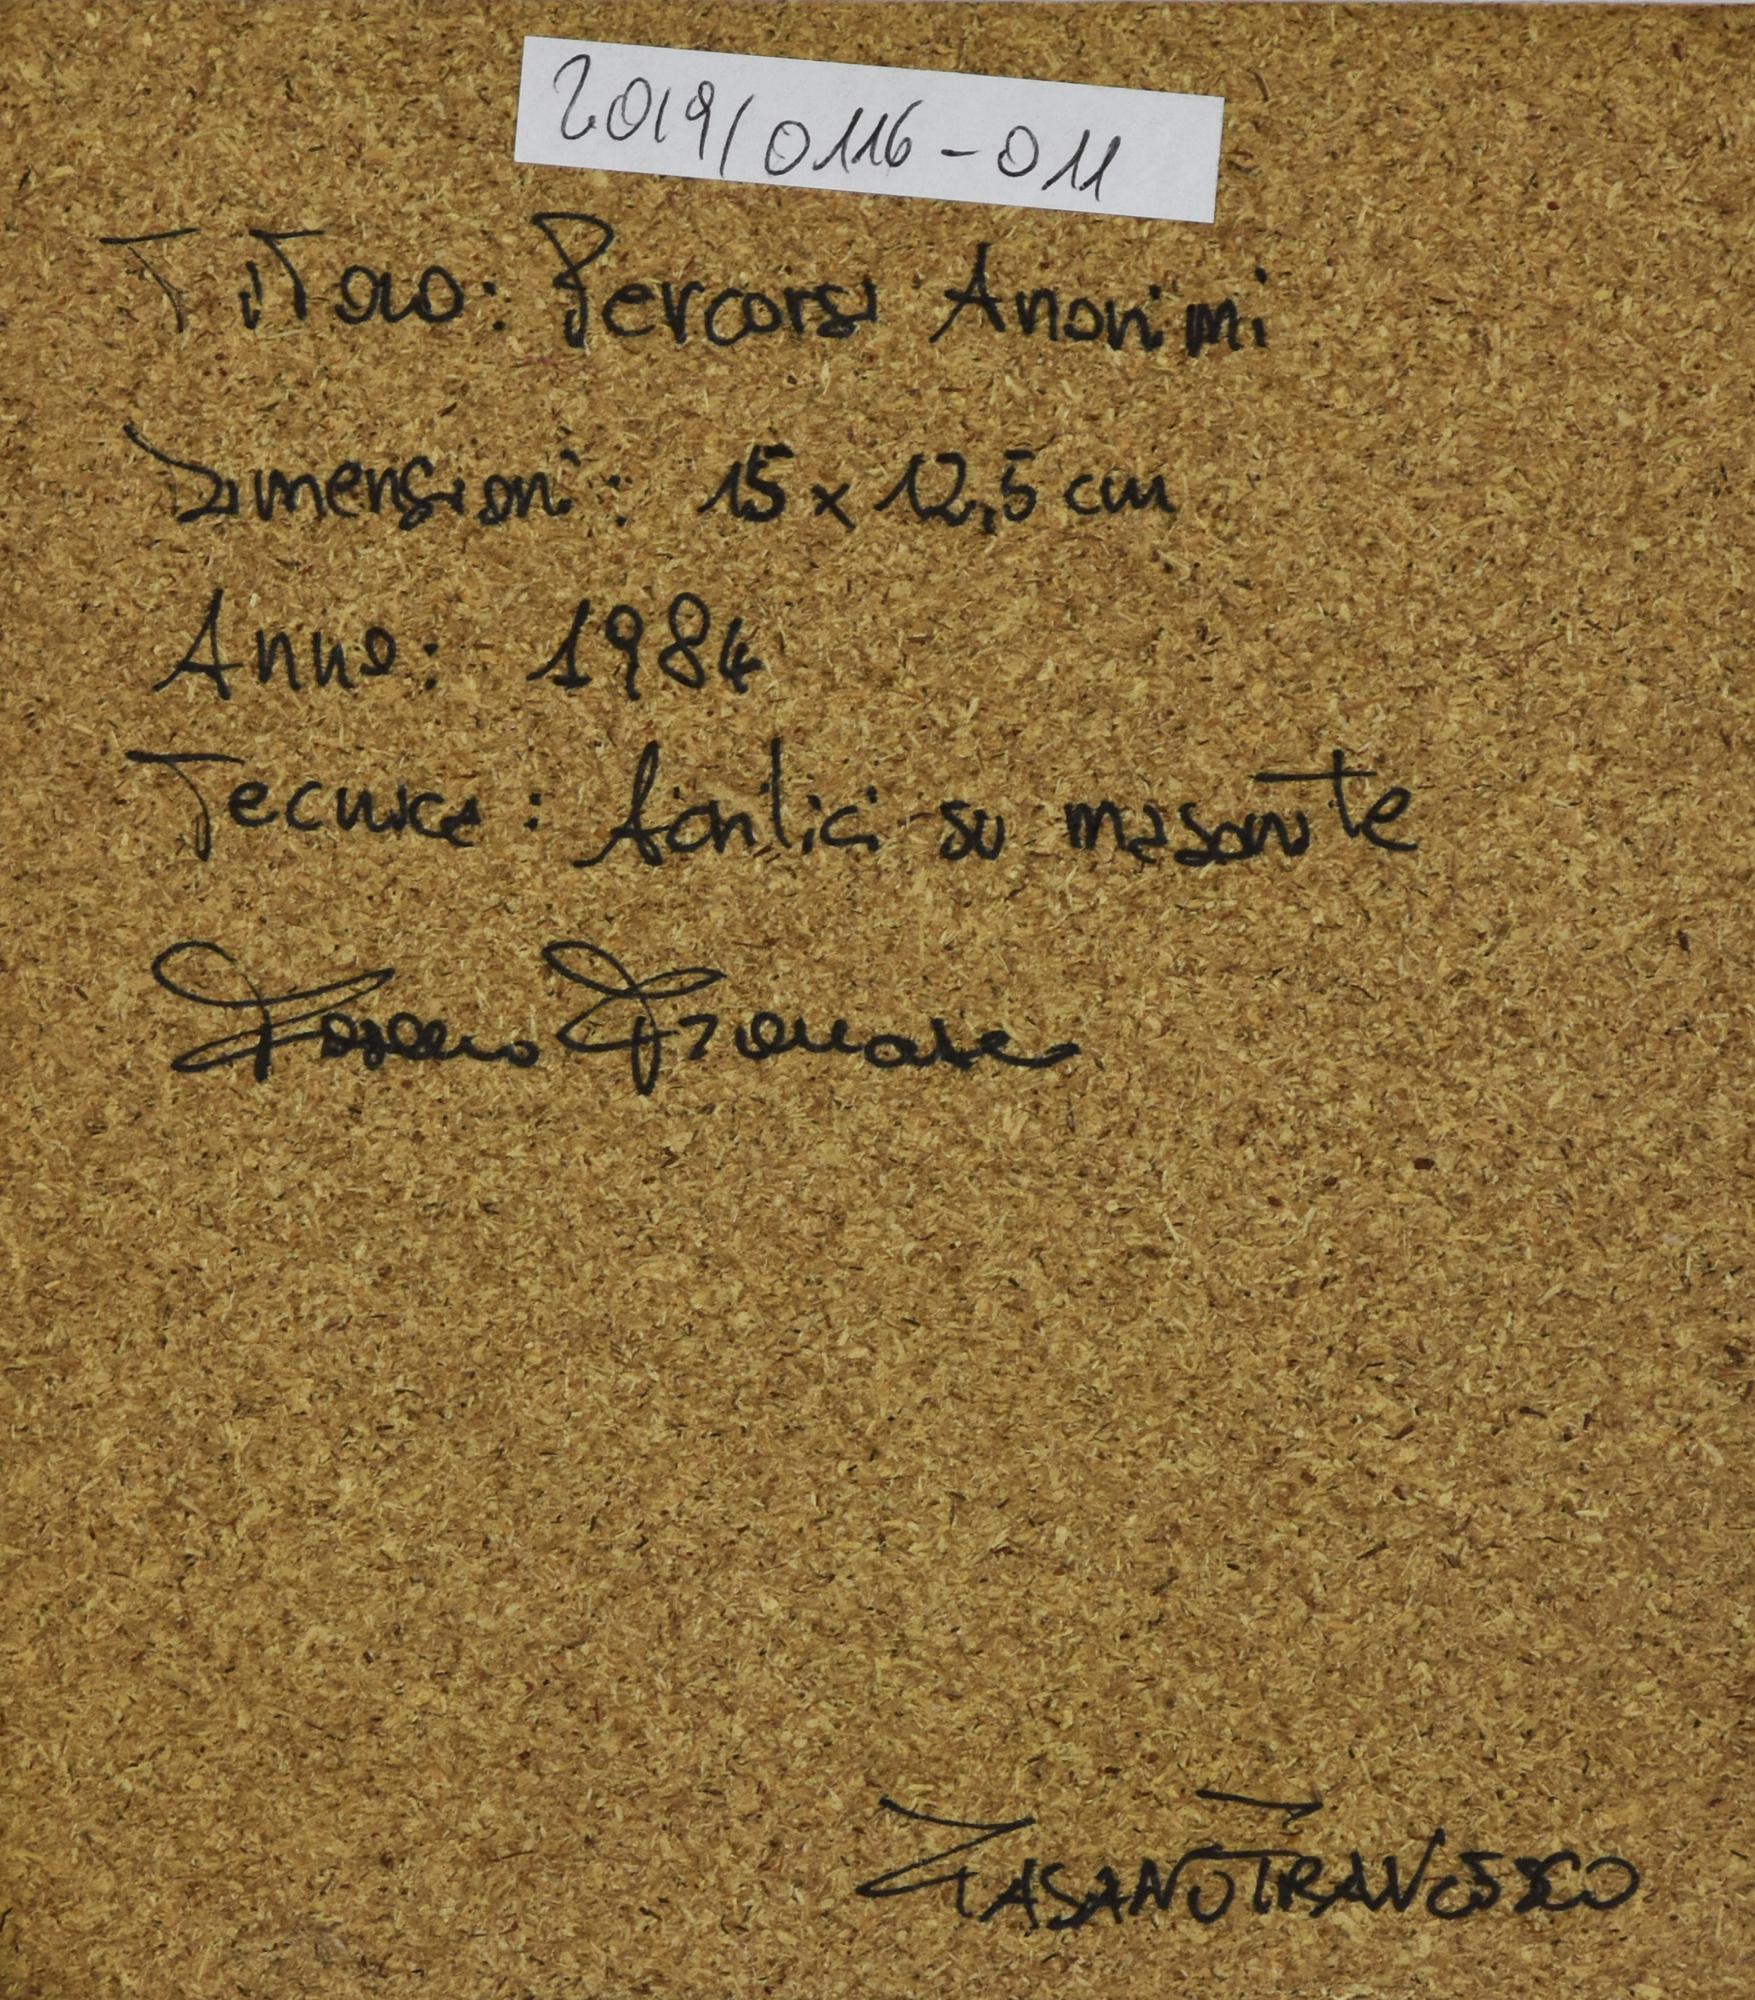 2019/0116-011
Titolo: Percorsi Anonimi
Dimensioni: 15 x 12,5 cm
Anno: 1984
Tecnica: Acrilici su masonite
Fasano Francesco
FASANO FRANCESCO